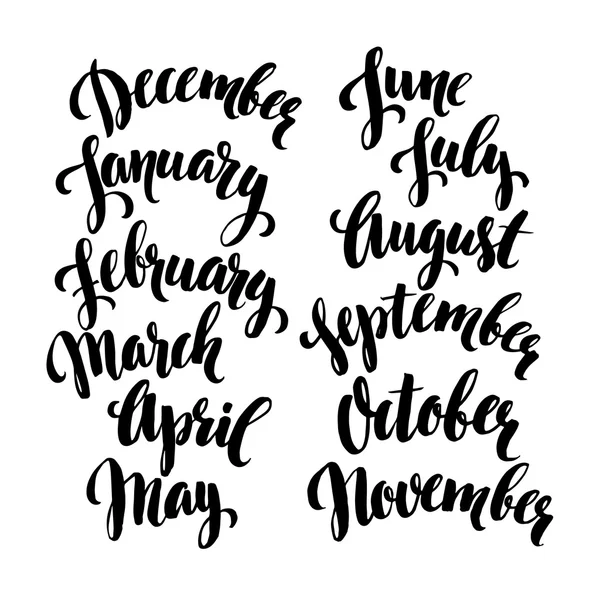 December
January
February
March
April
May
June
July
August
September
October
November